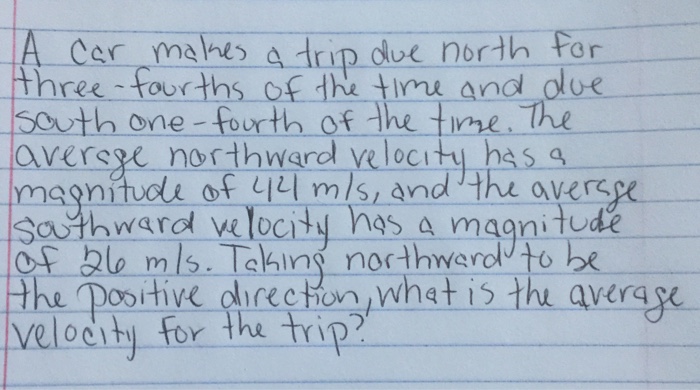 A car makes a trip due north for
three-fourths of the time and due
south one-fourth of the time. The
average northward velocity has a
magnitude of 44 m/s, and the average
southward velocity has a magnitude
of 26 m/s. Taking northward to be
the positive direction, what is the average
velocity for the trip?